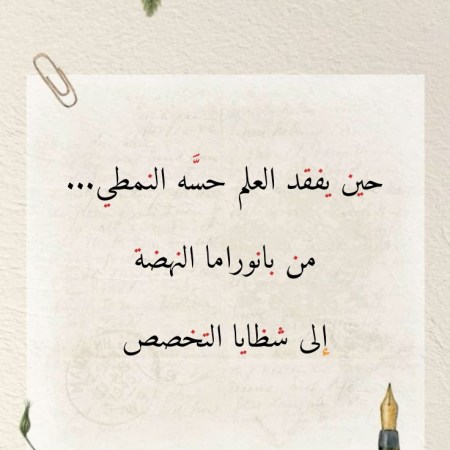 حين يفقد العلم حسَّه النمطي...
من بانوراما النهضة
إلى شظايا التخصص